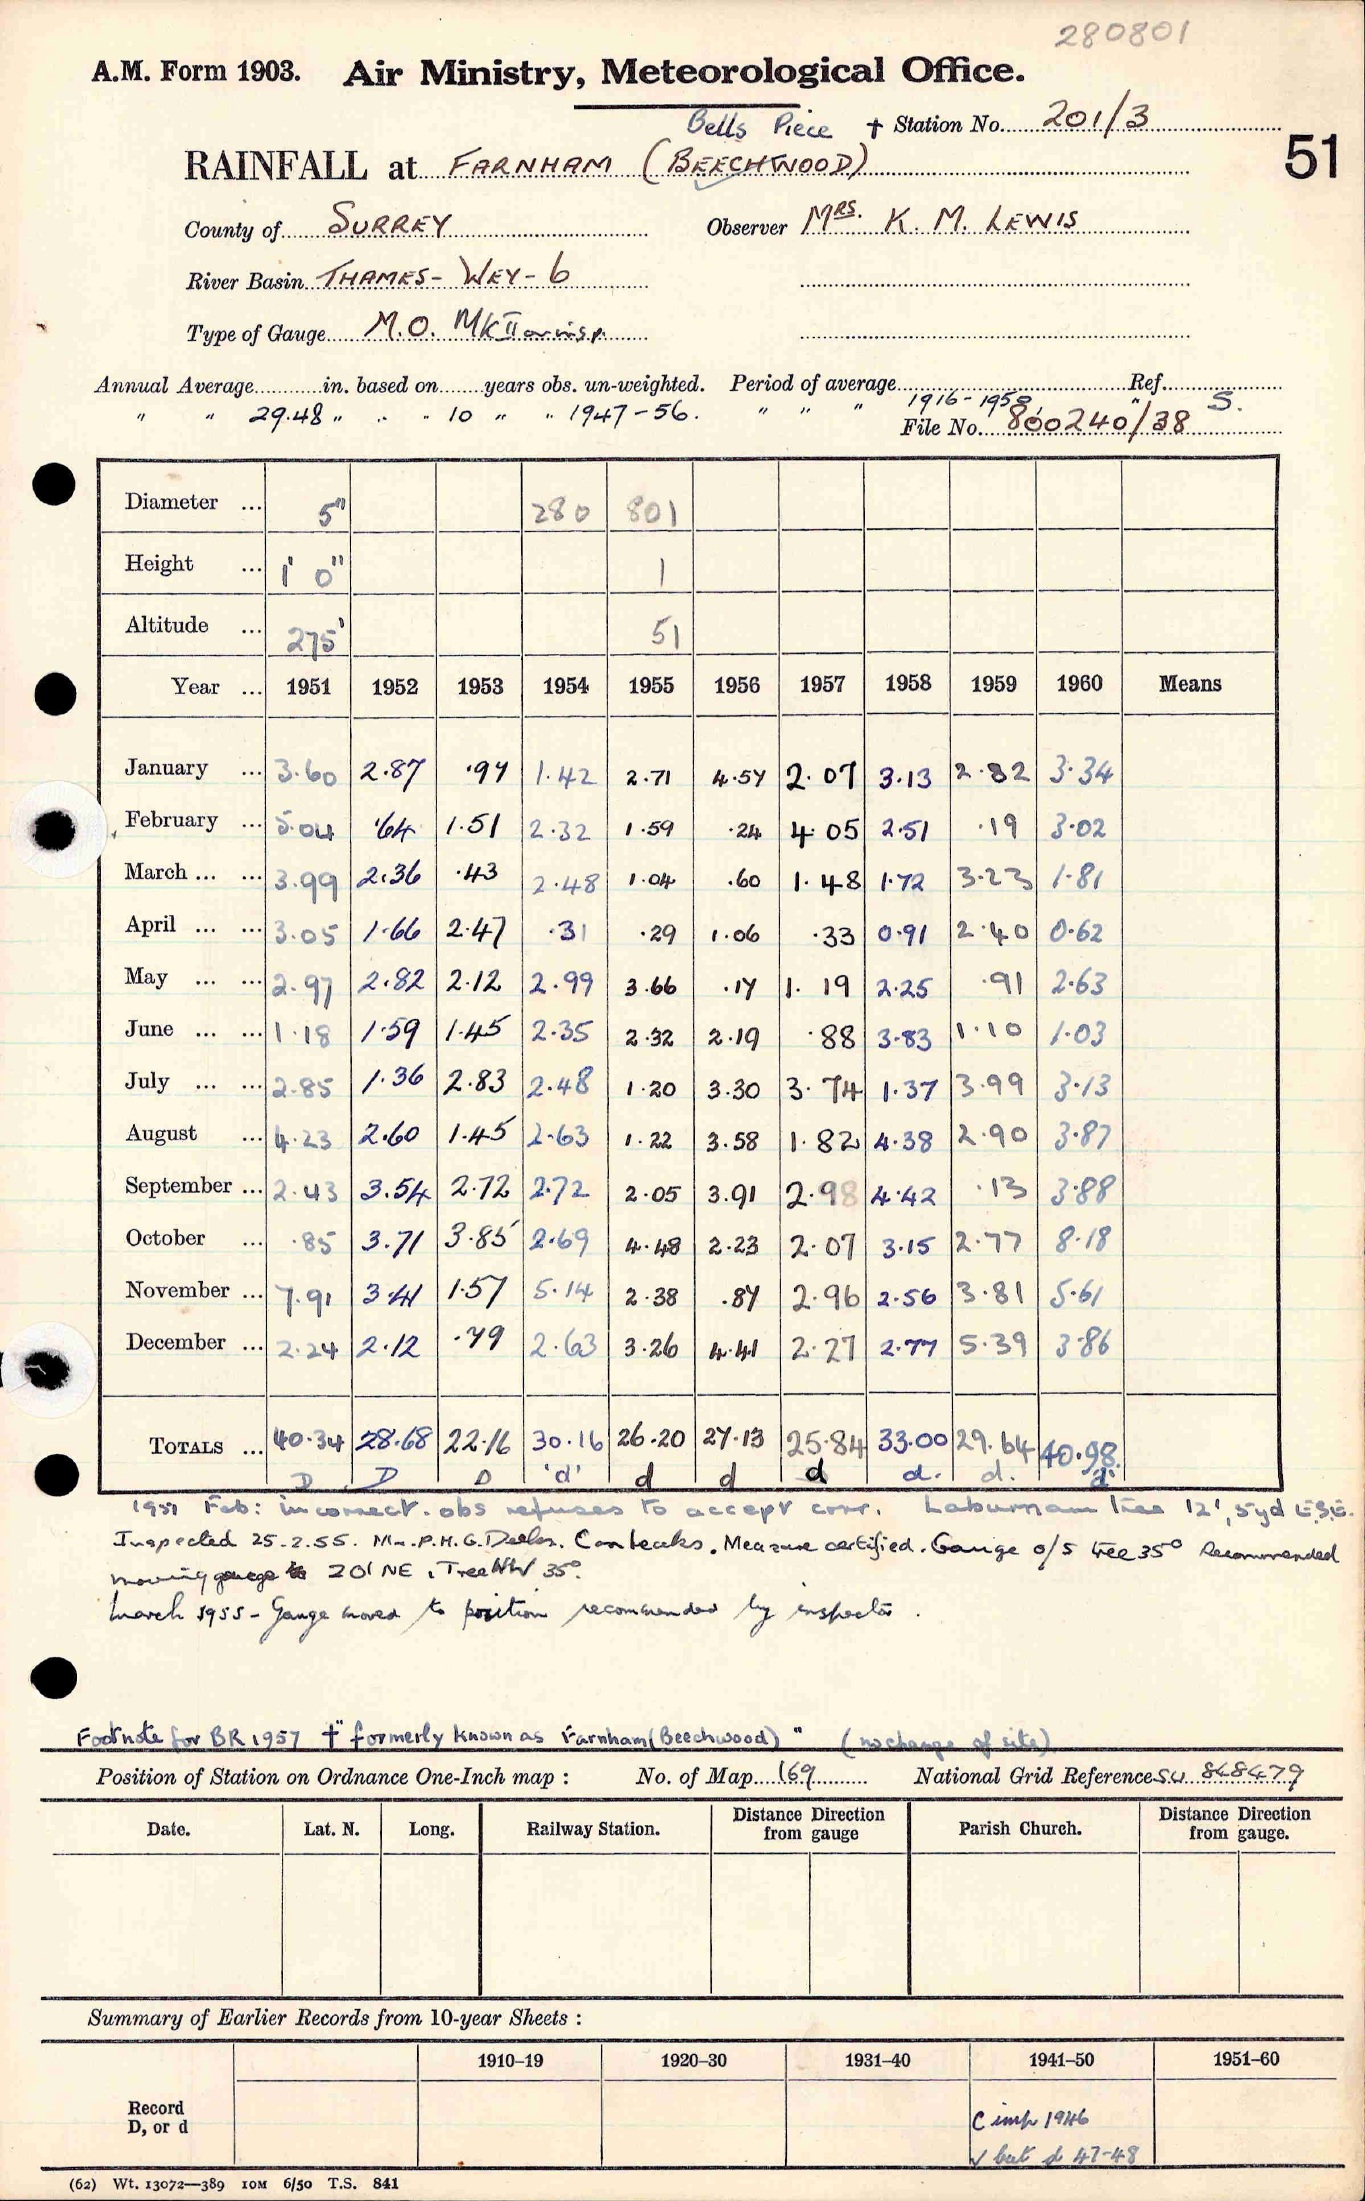 280801
A.M. Form 1903. Air Ministry, Meteorological Office.
Bells Piece † Station No. 201/3
51
RAINFALL at FARNHAM (BEECHWOOD)
County of SURREY Observer MRS. K. M. LEWIS
River Basin THAMES - WEY - 6
Type of Gauge M.O. MK II
Annual Average in. based on years obs. un-weighted. Period of average Ref.
" " 29.48 " " " 10 " " 1947-56. " " " 1916-1950 " S.
File No. 800240/38
Diameter ... 5" 280 801
Height ... 1' 0" 1
Altitude ... 275' 51
Year ... 1951 1952 1953 1954 1955 1956 1957 1958 1959 1960 Means
January ... 3.60 2.87 .97 1.42 2.71 4.57 2.07 3.13 2.82 3.34
February ... 5.04 .64 1.51 2.32 1.59 .24 4.05 2.51 .19 3.02
March ... ... 3.99 2.36 .43 2.48 1.04 .60 1.48 1.72 3.23 1.81
April ... ... 3.05 1.66 2.47 .31 .29 1.06 .33 0.91 2.40 0.62
May ... ... 2.97 2.82 2.12 2.99 3.66 .17 1.19 2.25 .91 2.63
June ... ... 1.18 1.59 1.45 2.35 2.32 2.19 .88 3.83 1.10 1.03
July ... ... 2.85 1.36 2.83 2.48 1.20 3.30 3.74 1.37 3.99 3.13
August ... 4.23 2.60 1.45 2.63 1.22 3.58 1.82 4.38 2.90 3.87
September ... 2.43 3.54 2.72 2.72 2.05 3.91 2.98 4.42 .13 3.88
October ... .85 3.71 3.85 2.69 4.48 2.23 2.07 3.15 2.77 8.18
November ... 7.91 3.41 1.57 5.14 2.38 .87 2.96 2.56 3.81 5.61
December ... 2.24 2.12 .79 2.63 3.26 4.41 2.27 2.77 5.39 3.86
TOTALS ... 40.34 28.68 22.16 30.16 26.20 27.13 25.84 33.00 29.64 40.98
D D D 'd' d d d d. d. d
1951 Feb: incorrect. obs refuses to accept corr. Laburnam tree 12', 5yd E.S.E.
Inspected 25.2.55. Mr. P.H.G. Can leaks. Measure certified. Gauge o/s tree 35° Recommended
moving gauge to 20' NE, Tree NW 35°.
March 1955 - Gauge moved to position recommended by inspector.
Footnote for BR 1957 †"formerly known as Farnham (Beechwood)" (no change of site)
Position of Station on Ordnance One-Inch map : No. of Map 169 National Grid Reference SU 848479
Date. Lat. N. Long. Railway Station. Distance Direction from gauge Parish Church. Distance Direction from gauge.
Summary of Earlier Records from 10-year Sheets :
1910–19 1920–30 1931–40 1941–50 1951–60
Record
D, or d
C imp 1946
√ but d 47-48
(62) Wt. 13072—389 10M 6/50 T.S. 841